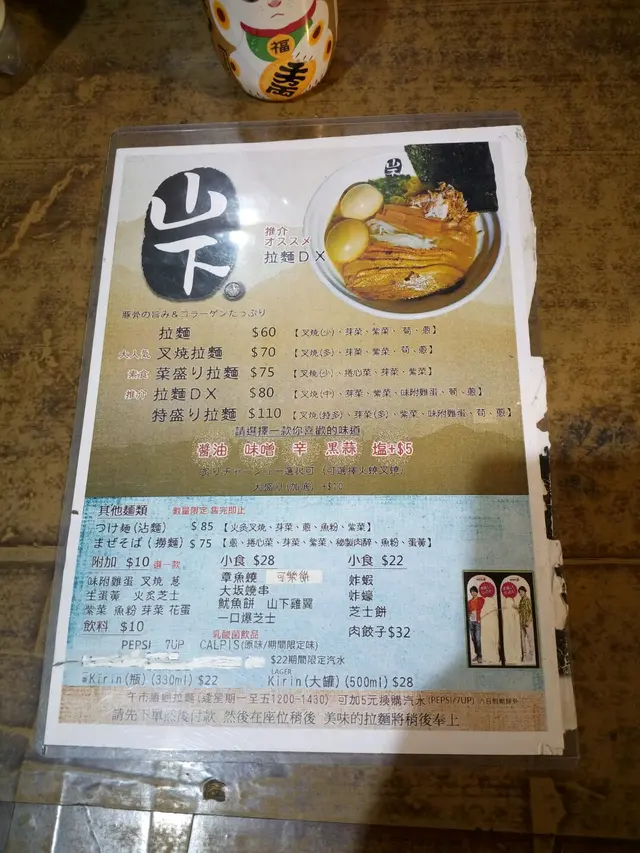 福
山下
山下
推介
オススメ
拉麵DX
豚骨の旨み&コラーゲンたっぷり
拉麵 $60 【叉燒(少)、芽菜、紫菜、筍、蔥】
大人気 叉燒拉麵 $70 【叉燒(多)、芽菜、紫菜、筍、蔥】
素食 菜盛り拉麵 $75 【叉燒(少)、捲心菜、芽菜、紫菜】
推介 拉麵DX $80 【叉燒(中)、芽菜、紫菜、味附雞蛋、筍、蔥】
特盛り拉麵 $110 【叉燒(特多)、芽菜(多)、紫菜、味附雞蛋、筍、蔥】
請選擇一款你喜歡的味道
醤油 味噌 辛 黒蒜 塩+$5
炙りチャーシュー選択可 (可選擇火燒叉燒)
大盛り(加底) +$10
其他麵類 數量限定 售完即止
つけ麺(沾麵) $85 【火炙叉燒、芽菜、蔥、魚粉、紫菜】
まぜそば(撈麵) $75 【蔥、捲心菜、芽菜、紫菜、秘製肉醉、魚粉、蛋黃】
附加 $10 選一款
味附雞蛋 叉燒 蔥
生蛋黃 火炙芝士
紫菜 魚粉 芽菜 花蛋
小食 $28
章魚燒 可樂餅
大坂燒串
魷魚餅 山下雞翼
一口爆芝士
小食 $22
炸蝦
炸蠔
芝士餅
肉餃子$32
飲料 $10 乳酸菌飲品
PEPSI 7UP CALPIS(原味/期間限定味)
$22期間限定汽水
LAGER
Kirin(瓶)(330ml) $22 Kirin(大罐)(500ml) $28
午市繽紛拉麵(逢星期一至五1200-1430) 可加5元換購汽水(PEPSI/7UP)
請先下單然後付款 然後在座位稍後 美味的拉麵將稍後奉上